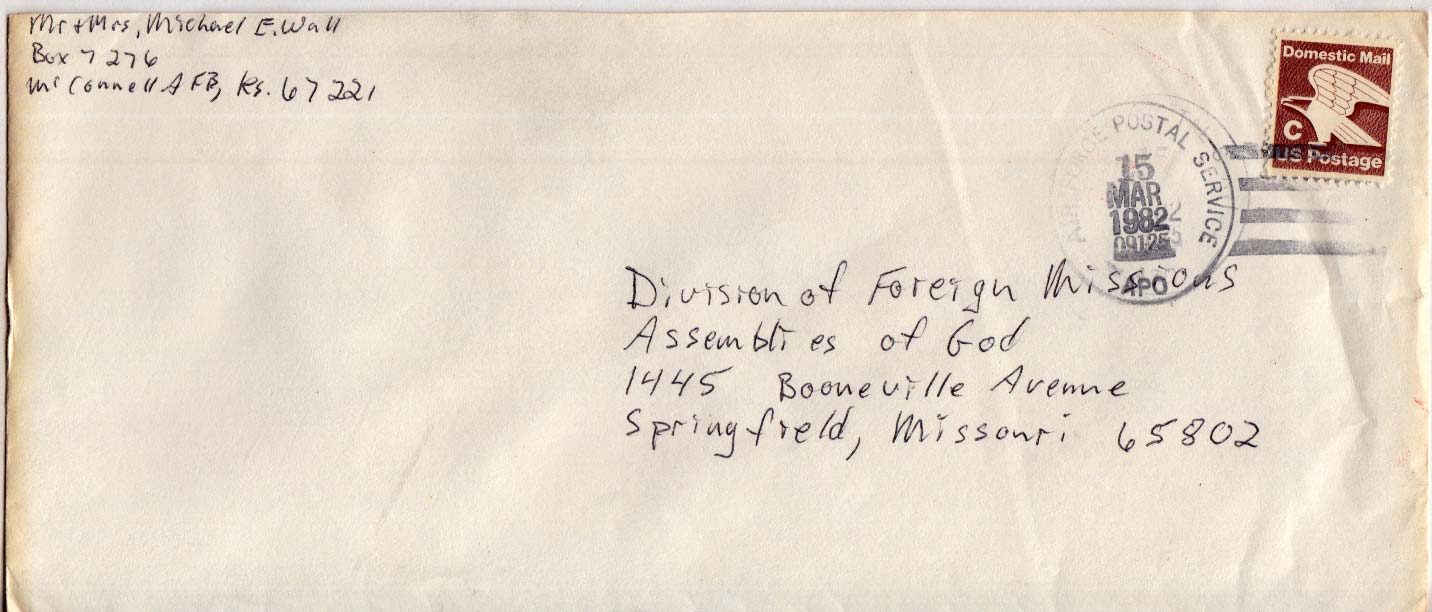 Mr + Mrs, Michael E. Wall
Box 7276
McConnell AFB, Ks. 67221
Domestic Mail
C
US Postage
AIR FORCE POSTAL SERVICE
15
MAR
1982
09125
APO
Division of Foreign Missions
Assemblies of God
1445 Booneville Avenue
Springfield, Missouri 65802